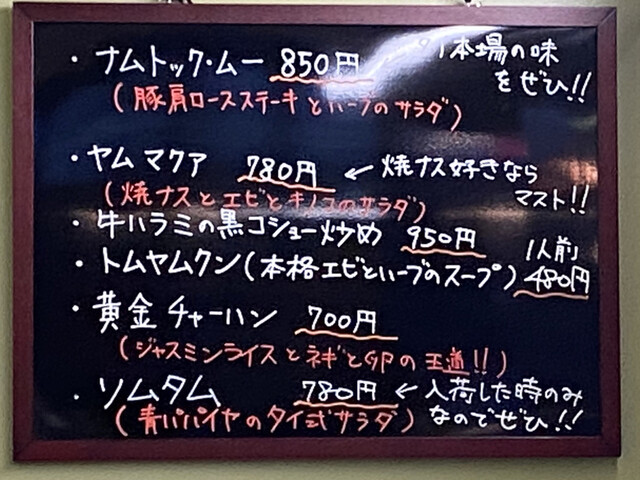 ・ナムトック・ムー 850円 ← 本場の味
をぜひ!!
(豚肩ロースステーキとハーブのサラダ)
・ヤムマクア 780円 ← 焼ナス好きなら
マスト!!
(焼ナスとエビとキノコのサラダ)
・牛ハラミの黒コショー炒め 950円
・トムヤムクン(本格エビとハーブのスープ) 1人前 480円
・黄金チャーハン 700円
(ジャスミンライスとネギとの王道!!)
・ソムタム 780円 ← 入荷した時のみ
なのでぜひ!!
(青パパイヤのタイ式サラダ)